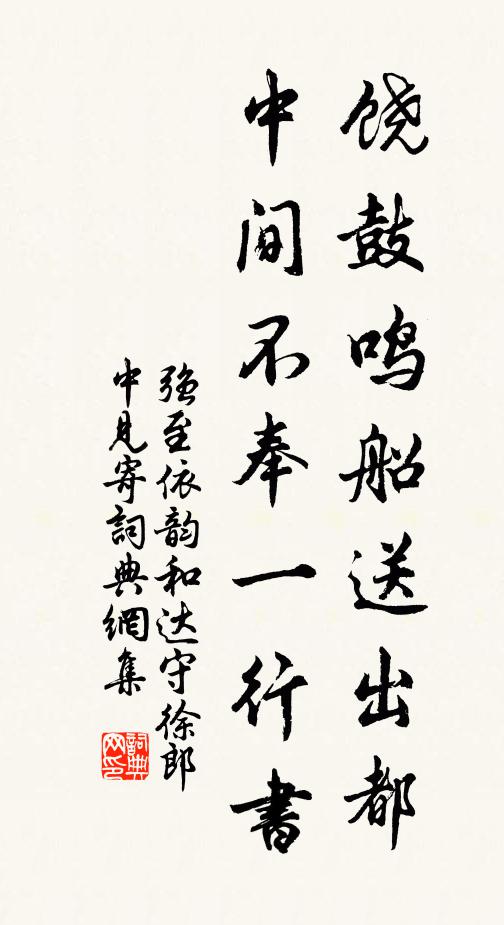 饶鼓鸣船送出都
中间不奉一行書
强至依韵和达守徐郎
中見寄詞典網集
詞典网印